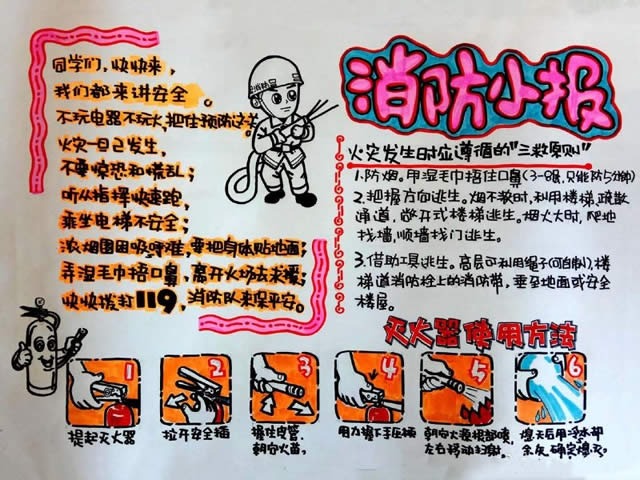 消防小报
同学们，快快来，
我们都来讲安全。
不玩电器不玩火，把住预防这关
火灾一旦已发生，
不要惊恐和慌乱；
听从指挥快速跑，
乘坐电梯不安全；
浓烟围困吸呼难，要把身体贴地面；
弄湿毛巾捂口鼻，离开火场去求援；
快快拨打119，消防队来保平安。
火灾发生时应遵循的"三救原则"
1.防烟。用湿毛巾捂住口鼻(3-8层，只能防5分钟)
2.把握方向逃生。烟不散时，利用楼梯，疏散
通道，敞开式楼梯逃生。烟火大时，爬地
找墙，顺墙找门逃生。
3.借助工具逃生。高层可利用绳子(可自制)，楼
梯道消防栓上的消防带，垂至地面或安全
楼层。
灭火器使用方法
1
提起灭火器
2
拉开安全插
3
握住皮管，
朝向火苗。
4
用力握下手压柄
5
朝向火源根部喷，
左右移动扫射。
6
熄灭后用冷水却
余灰，确定熄灭。